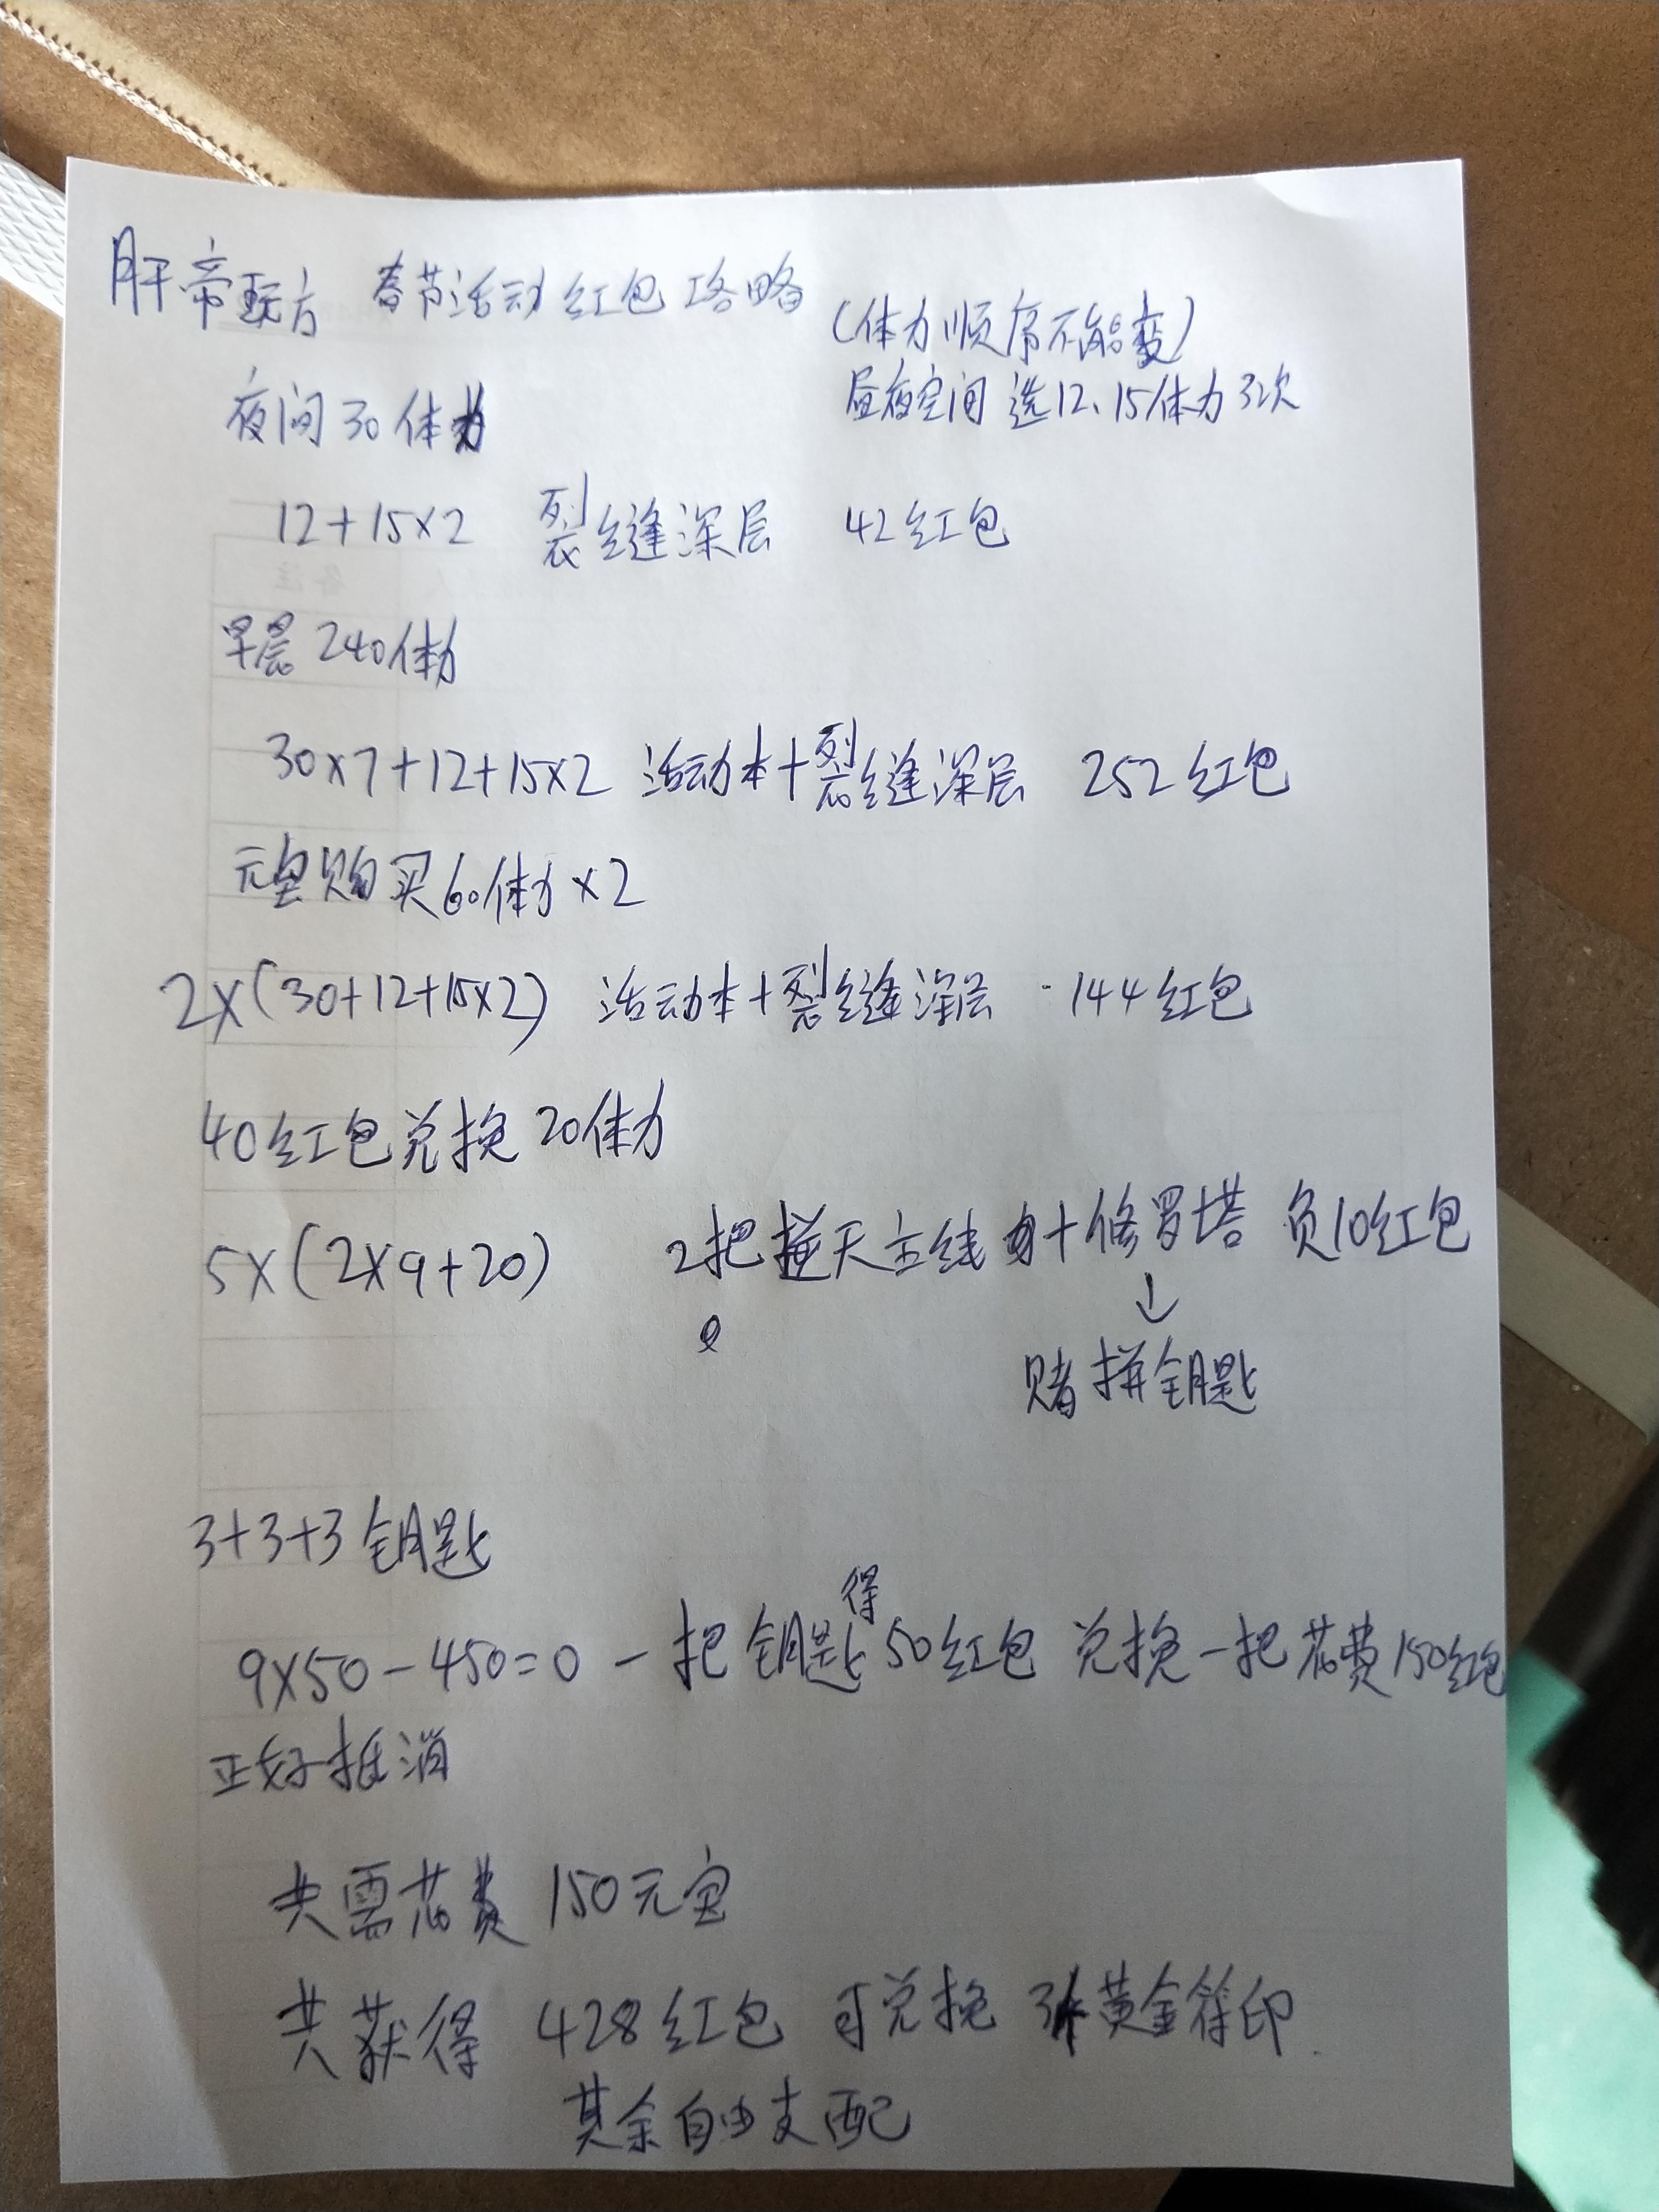 肝帝配方 春节活动红包攻略
(体力顺序不能变)
夜间30体力
昼夜空间 选12、15体力 3次
12+15×2 裂缝深层 42红包
早晨240体力
30×7+12+15×2 活动本+裂缝深层 252红包
元宝购买60体力×2
2×(30+12+15×2) 活动本+裂缝深层 144红包
40红包兑换20体力
5×(2×9+20) 2把逆天主线+修罗塔 负10红包
↓
赌拼钥匙
3+3+3钥匙
9×50-450=0 一把钥匙得50红包 兑换一把花费150红包
正好抵消
共需花费 150元宝
共获得 428红包 可兑换 3个黄金符印
其余自由支配